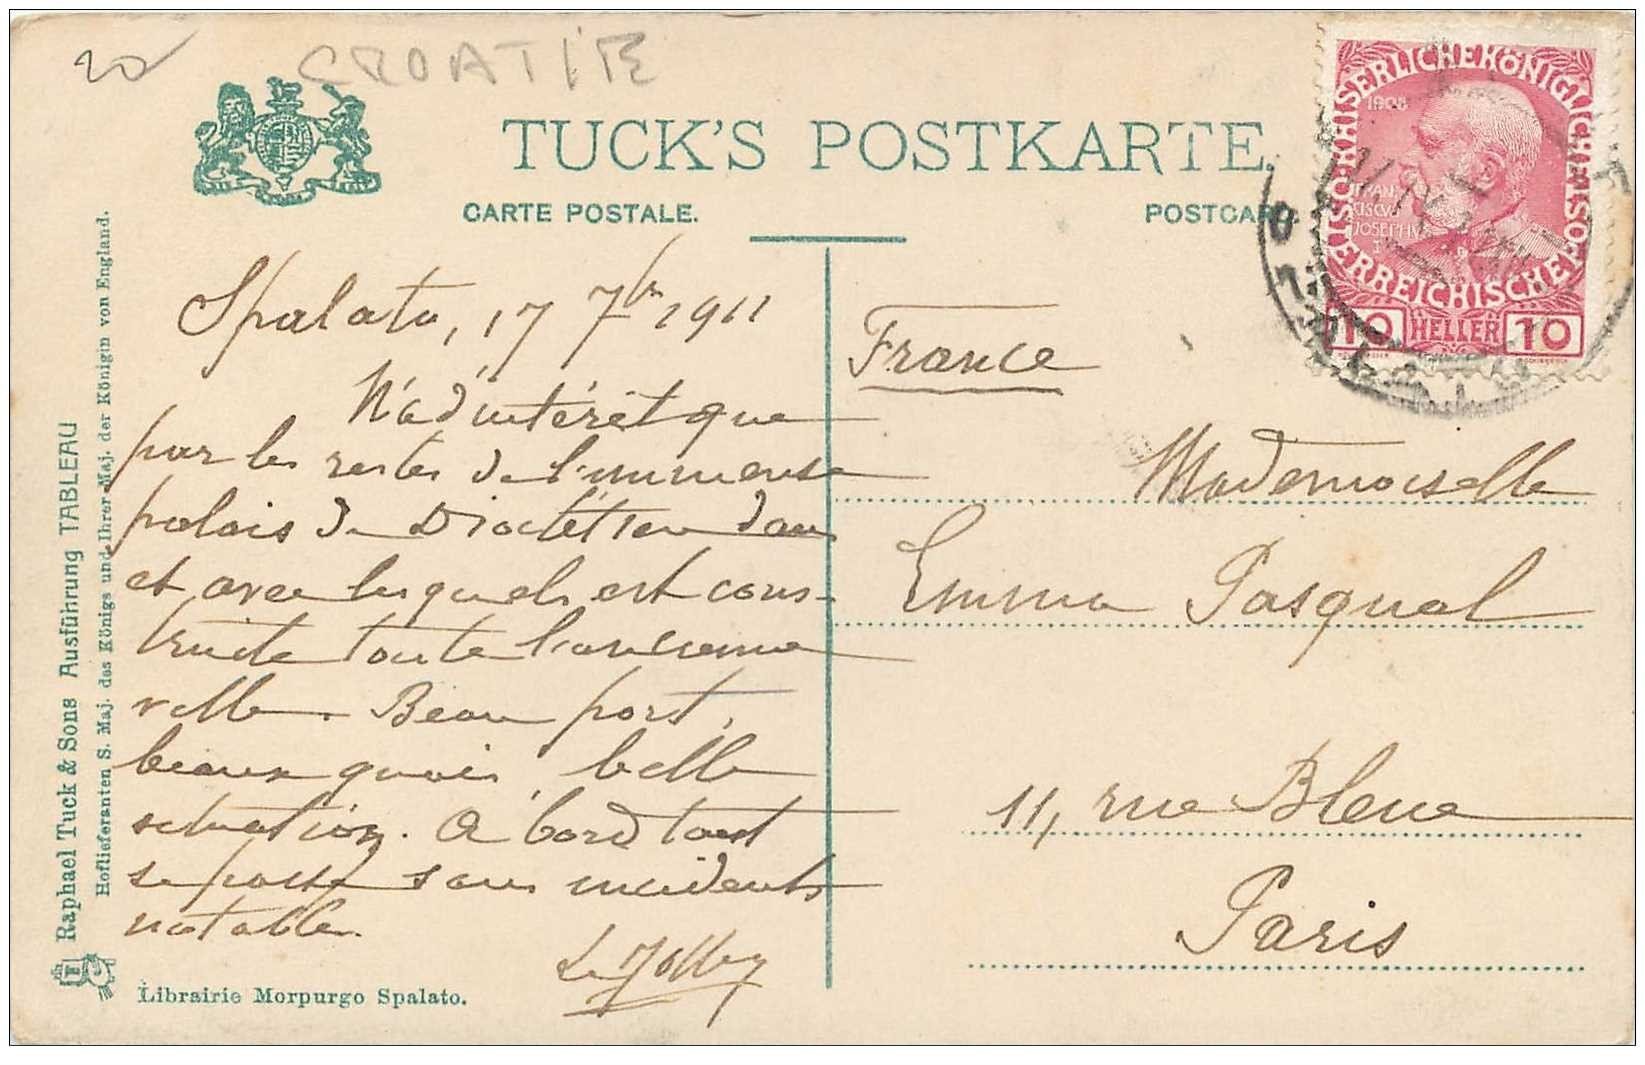 20
CROATIE
TUCK'S POSTKARTE.
CARTE POSTALE.
POSTCAR
KAISERLICHE KÖNIGLICHE ÖSTERREICHISCHE
1908
JOSEPHVS
10 HELLER 10
Spalato, 17 7bre 1911
N'a d'intérêt que
par les restes de l'immense
palais de Dioclétien dans
et avec lesquels est cons-
truite toute l'ancienne
ville. Beau port,
beaux quais, belle
situation. A bord tout
se passe sans incidents
notable.
France
Mademoiselle
Emma Pasqual
11, rue Bleue
Paris
Raphael Tuck & Sons Ausführung TABLEAU
Hoflieferanten S. Maj. des Königs und Ihrer Maj. der Königin von England.
Librairie Morpurgo Spalato.